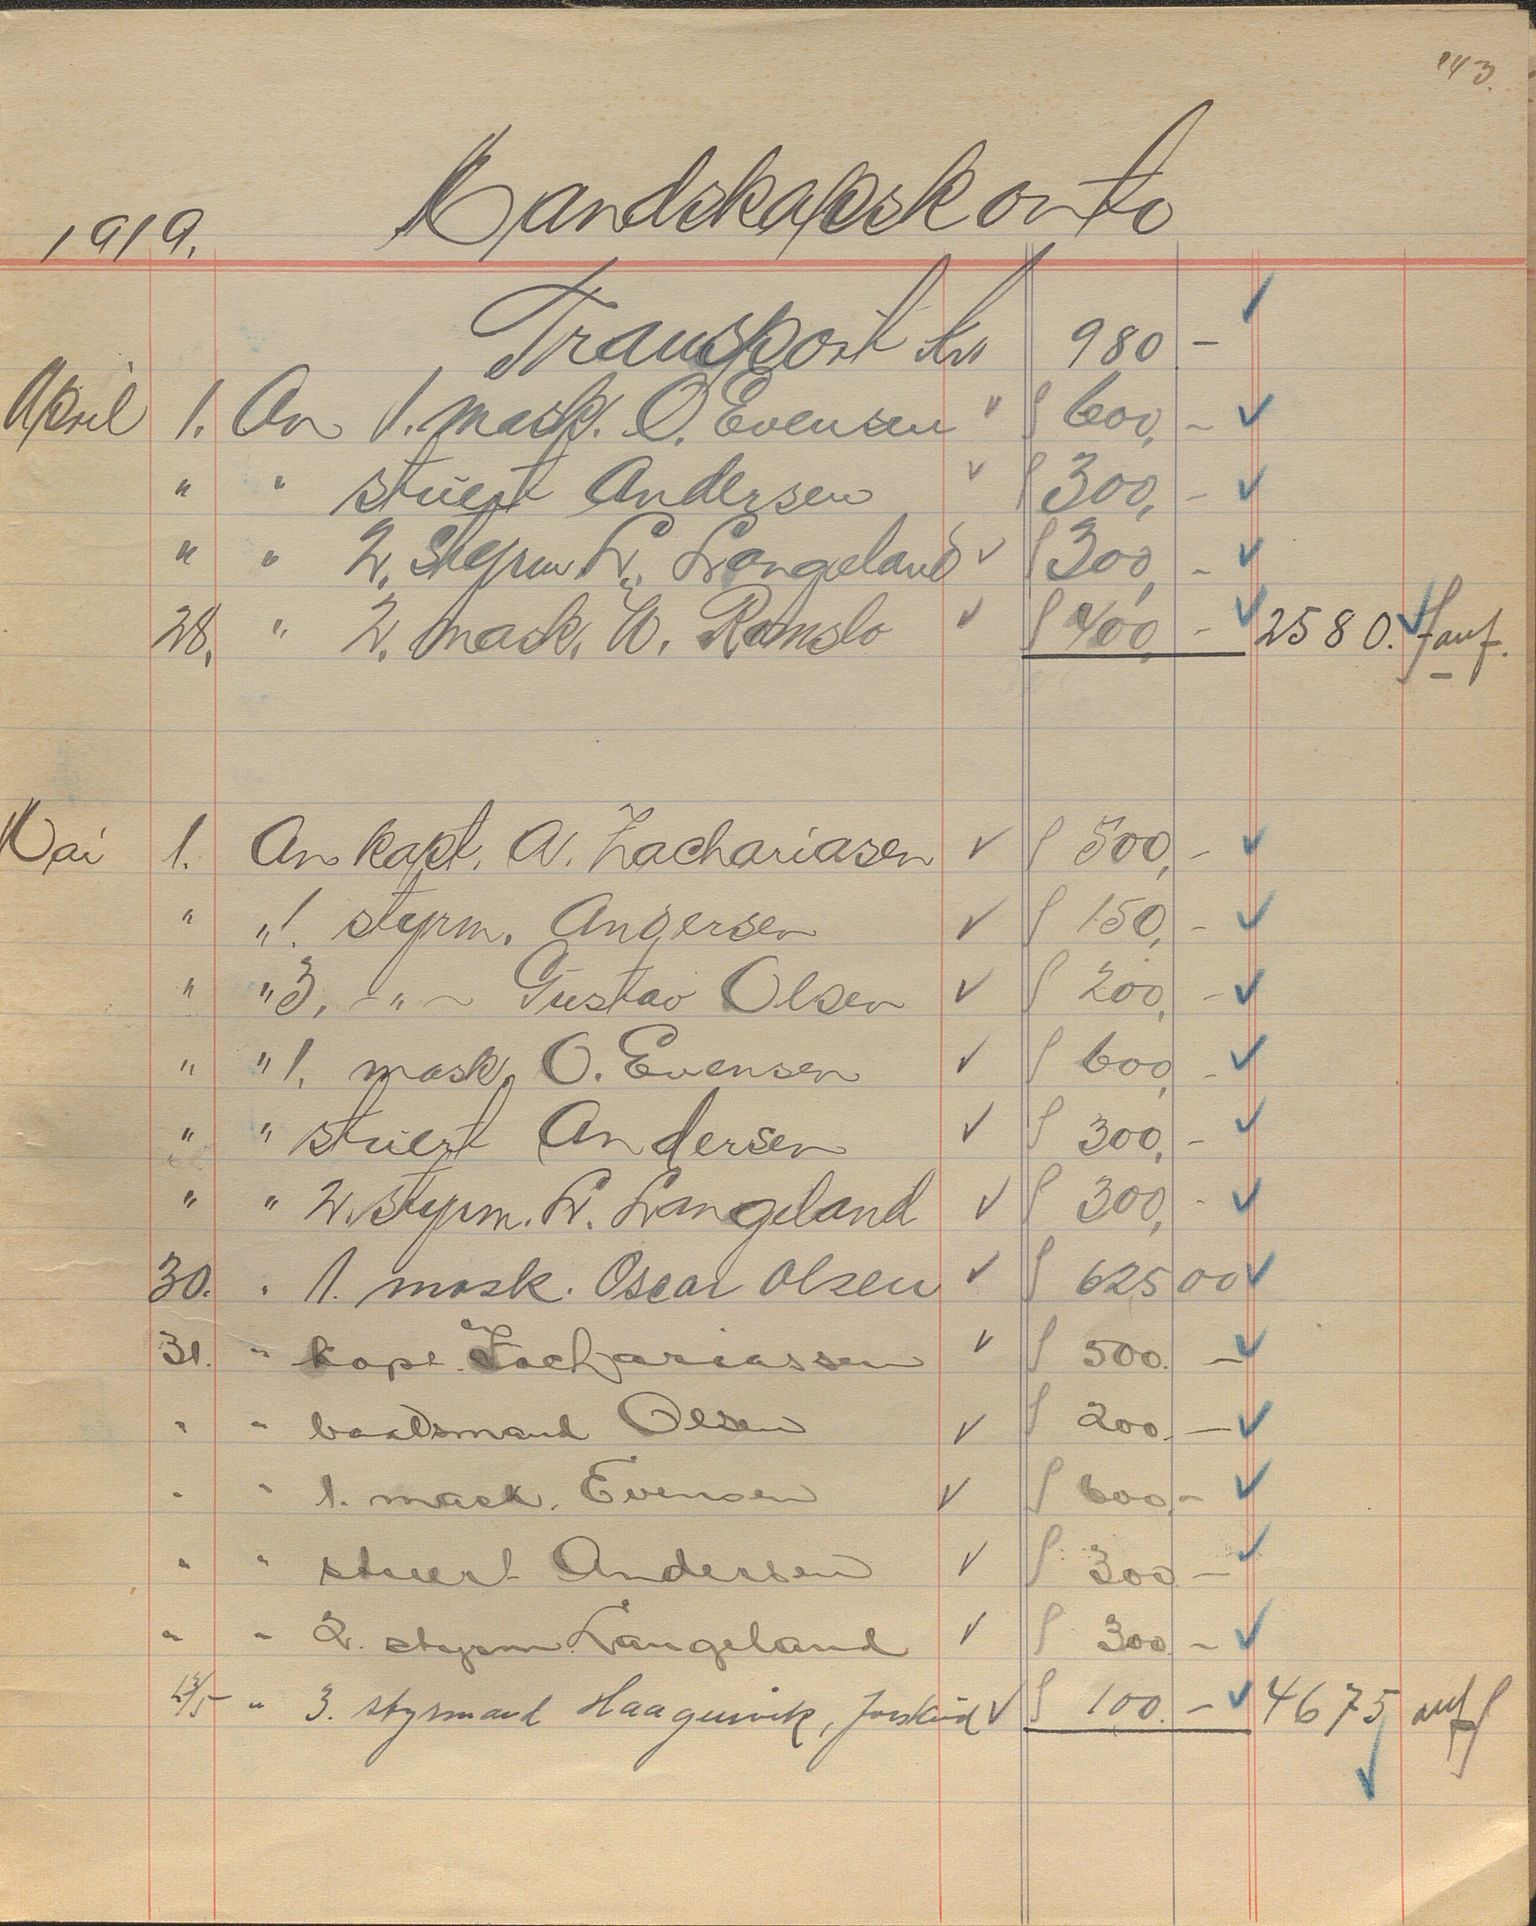 143.
Mandskapskonto
1919.
Transport Krs 980 -
April 1. An 1. mask. O. Evensen " 600, -
" " stuert Andersen " 300, -
" " 2. styrm. L. Langeland " 300, -
28. " 2. mask. W. Romslo " 400, - 2580.
Mai 1. An kapt. A. Zachariasen 500, -
" " 1. styrm. Andersen 150, -
" " 3. - " - Gustav Olsen 200, -
" " 1. mask. O. Evensen 600, -
" " stuert Andersen 300, -
" " 2. styrm. L. Langeland 300, -
30. " 1. mask. Oscar Olsen 625 00
31. " kapt. Zachariassen 500. -
" " baatsmand Olsen 200. -
" " 1. mask. Evensen 600, -
" " stuert Andersen 300 -
" " 2. styrm Langeland 300 -
" 3. styrmand Haagensvik, forskud 100. - 4675